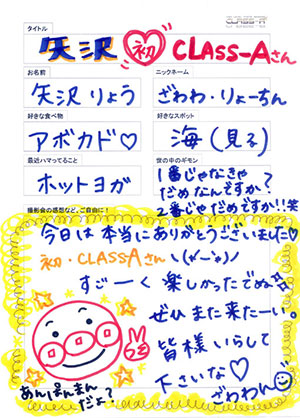 CLASS-A
タイトル
矢沢 初 CLASS-Aさん
お名前
ニックネーム
矢沢 りょう
ざわわ・りょーちん
好きな食べ物
好きなスポット
アボカド♡
海(見る)
最近ハマってること
世の中のギモン
ホットヨガ
1番じゃなきゃ
だめなんですか?
2番じゃだめです!!笑
撮影会の感想など、ご自由に!
今日は本当にありがとうございました♡
初・CLASSAさん
すごーく楽しかったでぬ
ぜひまた来たーい。
皆様いらして
下さいな♡
ざわわん
あんぱんまん
だよ?